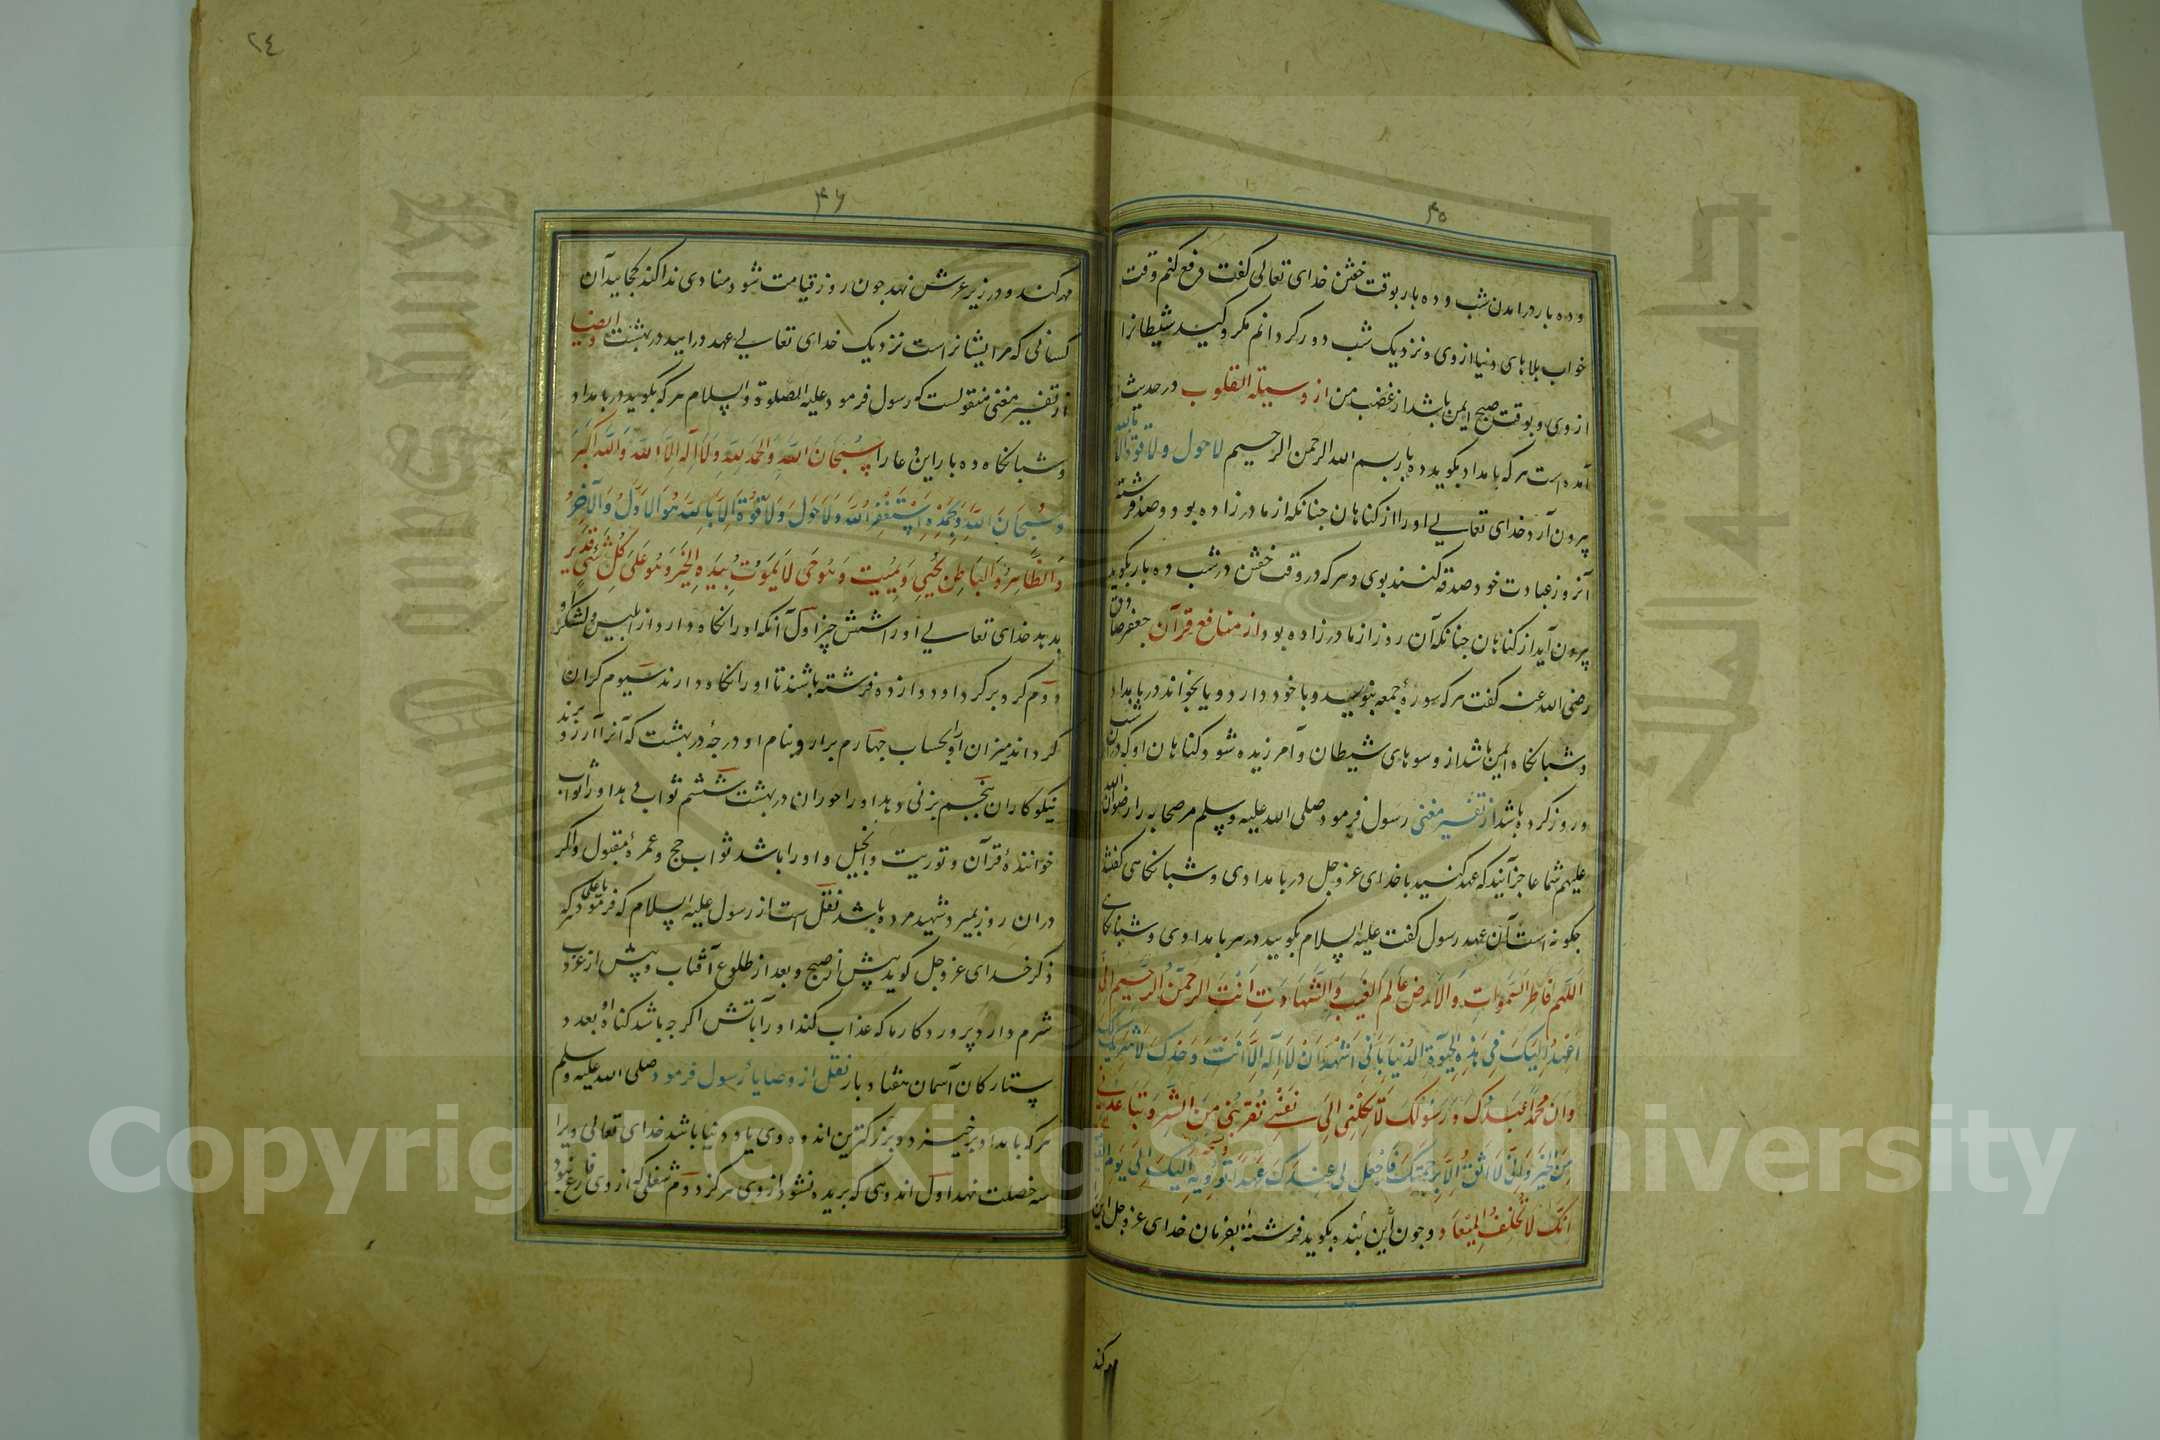 ٢٤
۴۵
وده بار درامدن شب وده بار بوقت خفتن خدای تعالی کفت دفع کنم وقت
خواب بلاهای دنیا از وی و نزدیک شب دور کردانم مکر و کید شیطانرا
از وی و بوقت صبح ایمن باشد از غضب من از وسیلة القلوب در حدیث
آمده است هرکه بامداد بکوید ده بار بسم الله الرحمن الرحیم لا حول ولا قوة الا بالله
پرون آرد خدای تعالی اورا از کناهان جنانکه از مادر زاده بود و صد فرشته
آنروز عبادت خود صدقه کنند بوی و هرکه در وقت خفتن در شب ده بار بکوید
پرون آید از کناهان جنانکه آن روز از مادر زاده بود از منافع قرآن جعفر صادق
رضی الله عنه کفت هرکه سورهٔ جمعه بنویسد و با خود دارد و یا بخواند در بامداد
و شبانکاه ایمن باشد از وسوهای شیطان و آمرزیده شود کناهان او که در آن شب
و روز کرده باشد از تفسیر مغنی رسول فرمود صلی الله علیه وسلم مر صحابه را رضوان الله
علیهم شما عاجز آنیند که عهد کنید با خدای عز وجل در بامدادی و شبانکاهی کفتند
جکونه است آن عهد رسول کفت علیه السلام بکویید در هر بامدادی و شبانکاهی
اَللّهم فاطر السموات والارض عالم الغیب والشهادت انت الرحمن الرحیم انی
اعهد الیک فی هذه الحیوة الدنیا بانی اشهد ان لا اله الا انت وحدک لا شریک لک
وان محمدا عبدک ورسولک لا تکلنی الی نفسی تقربنی من الشر وتباعدنی
من الخیر وانی لا اثق الا برحمتک فاجعل لی عندک عهدا تؤدیه الیک الی یوم القیمة
انک لا تخلف المیعاد وجون این بنده بکوید فرشتهٔ بفرمان خدای عز وجل این
مهر کند
۴۶
مهر کند و در زیر عرش نهد جون روز قیامت شود منادی ندا کند کجایید آن
کسانی که مر ایشانراست نزدیک خدای تعالی عهد درایید در بهشت وایضا
از تفسیر مغنی منقولست که رسول فرمود علیه الصلوة والسلام هرکه بکوید در بامداد
و شبانکاه ده بار این دعا را سبحان الله والحمد لله ولا اله الا الله والله اکبر
وسبحان الله وبحمده استغفر الله ولا حول ولا قوة الا بالله هو الاول والآخر
والظاهر والباطن یحیی ویمیت وهو حی لا یموت بیده الخیر وهو علی کل شئ قدیر
بدهد خدای تعالی اورا شش چیز اول آنکه اورا نکاه دارد از ابلیس و لشکر او
دوم کرد بر کرد او دوازده فرشته باشند تا اورا نکاه دارند سیوم کران
کرداند میزان اورا بحساب جهارم برارد بنام او درجهٔ در بهشت که آنرا آرزو برند
نیکوکاران پنجم بزنی دهد اورا حوران در بهشت ششم ثوابی هد اورا ثواب
خوانندهٔ قرآن و توریت و انجیل و اورا باشد ثواب حج و عمرهٔ مقبول و اکر
دران روز بمیرد شهید مرده باشد نقل است از رسول علیه السلام که فرمود یا علی هر که
ذکر خدای عز وجل کوید پیش از صبح و بعد از طلوع آفتاب و پیش از غروب
شرم دارد پروردکار ما که عذاب کند اورا بآتش اکرجه باشد کناه او بعدد
ستارکان آسمان هفتاد بار نقل از وصایاء رسول فرمود صلی الله علیه وسلم
هرکه بامداد برخیزد و بزرکترین اندوه وی یا دنیا باشد خدای تعالی ویرا
سه خصلت نهد اول اندوهی که بریده نشود از وی هرکز دوم شغلی که از وی فارغ نبود
Copyright © King Saud University